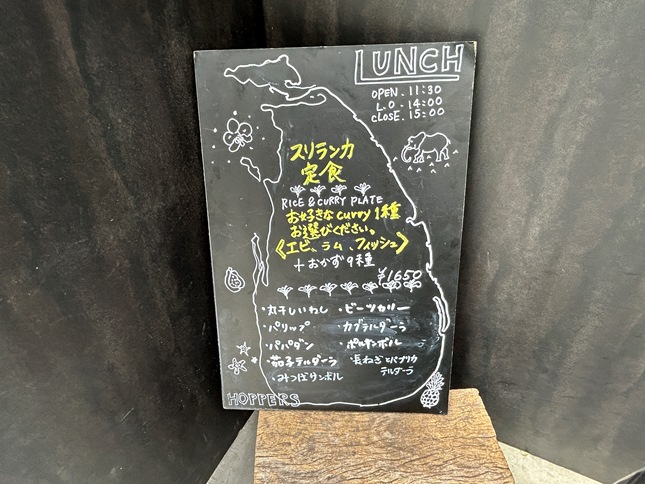 LUNCH
OPEN. 11:30
L.O - 14:00
CLOSE. 15:00
スリランカ
定食
RICE & CURRY PLATE
お好きなcurry1種
お選びください。
《エビ、ラム、フィッシュ》
+おかず9種
¥1650
・丸干しいわし
・パリップ
・パパダン
・茄子テルダーラ
・みつばサンボル
・ビーツカリー
・カブテルダーラ
・ポルサンボル
・長ねぎとパプリカ
テルダーラ
HOPPERS